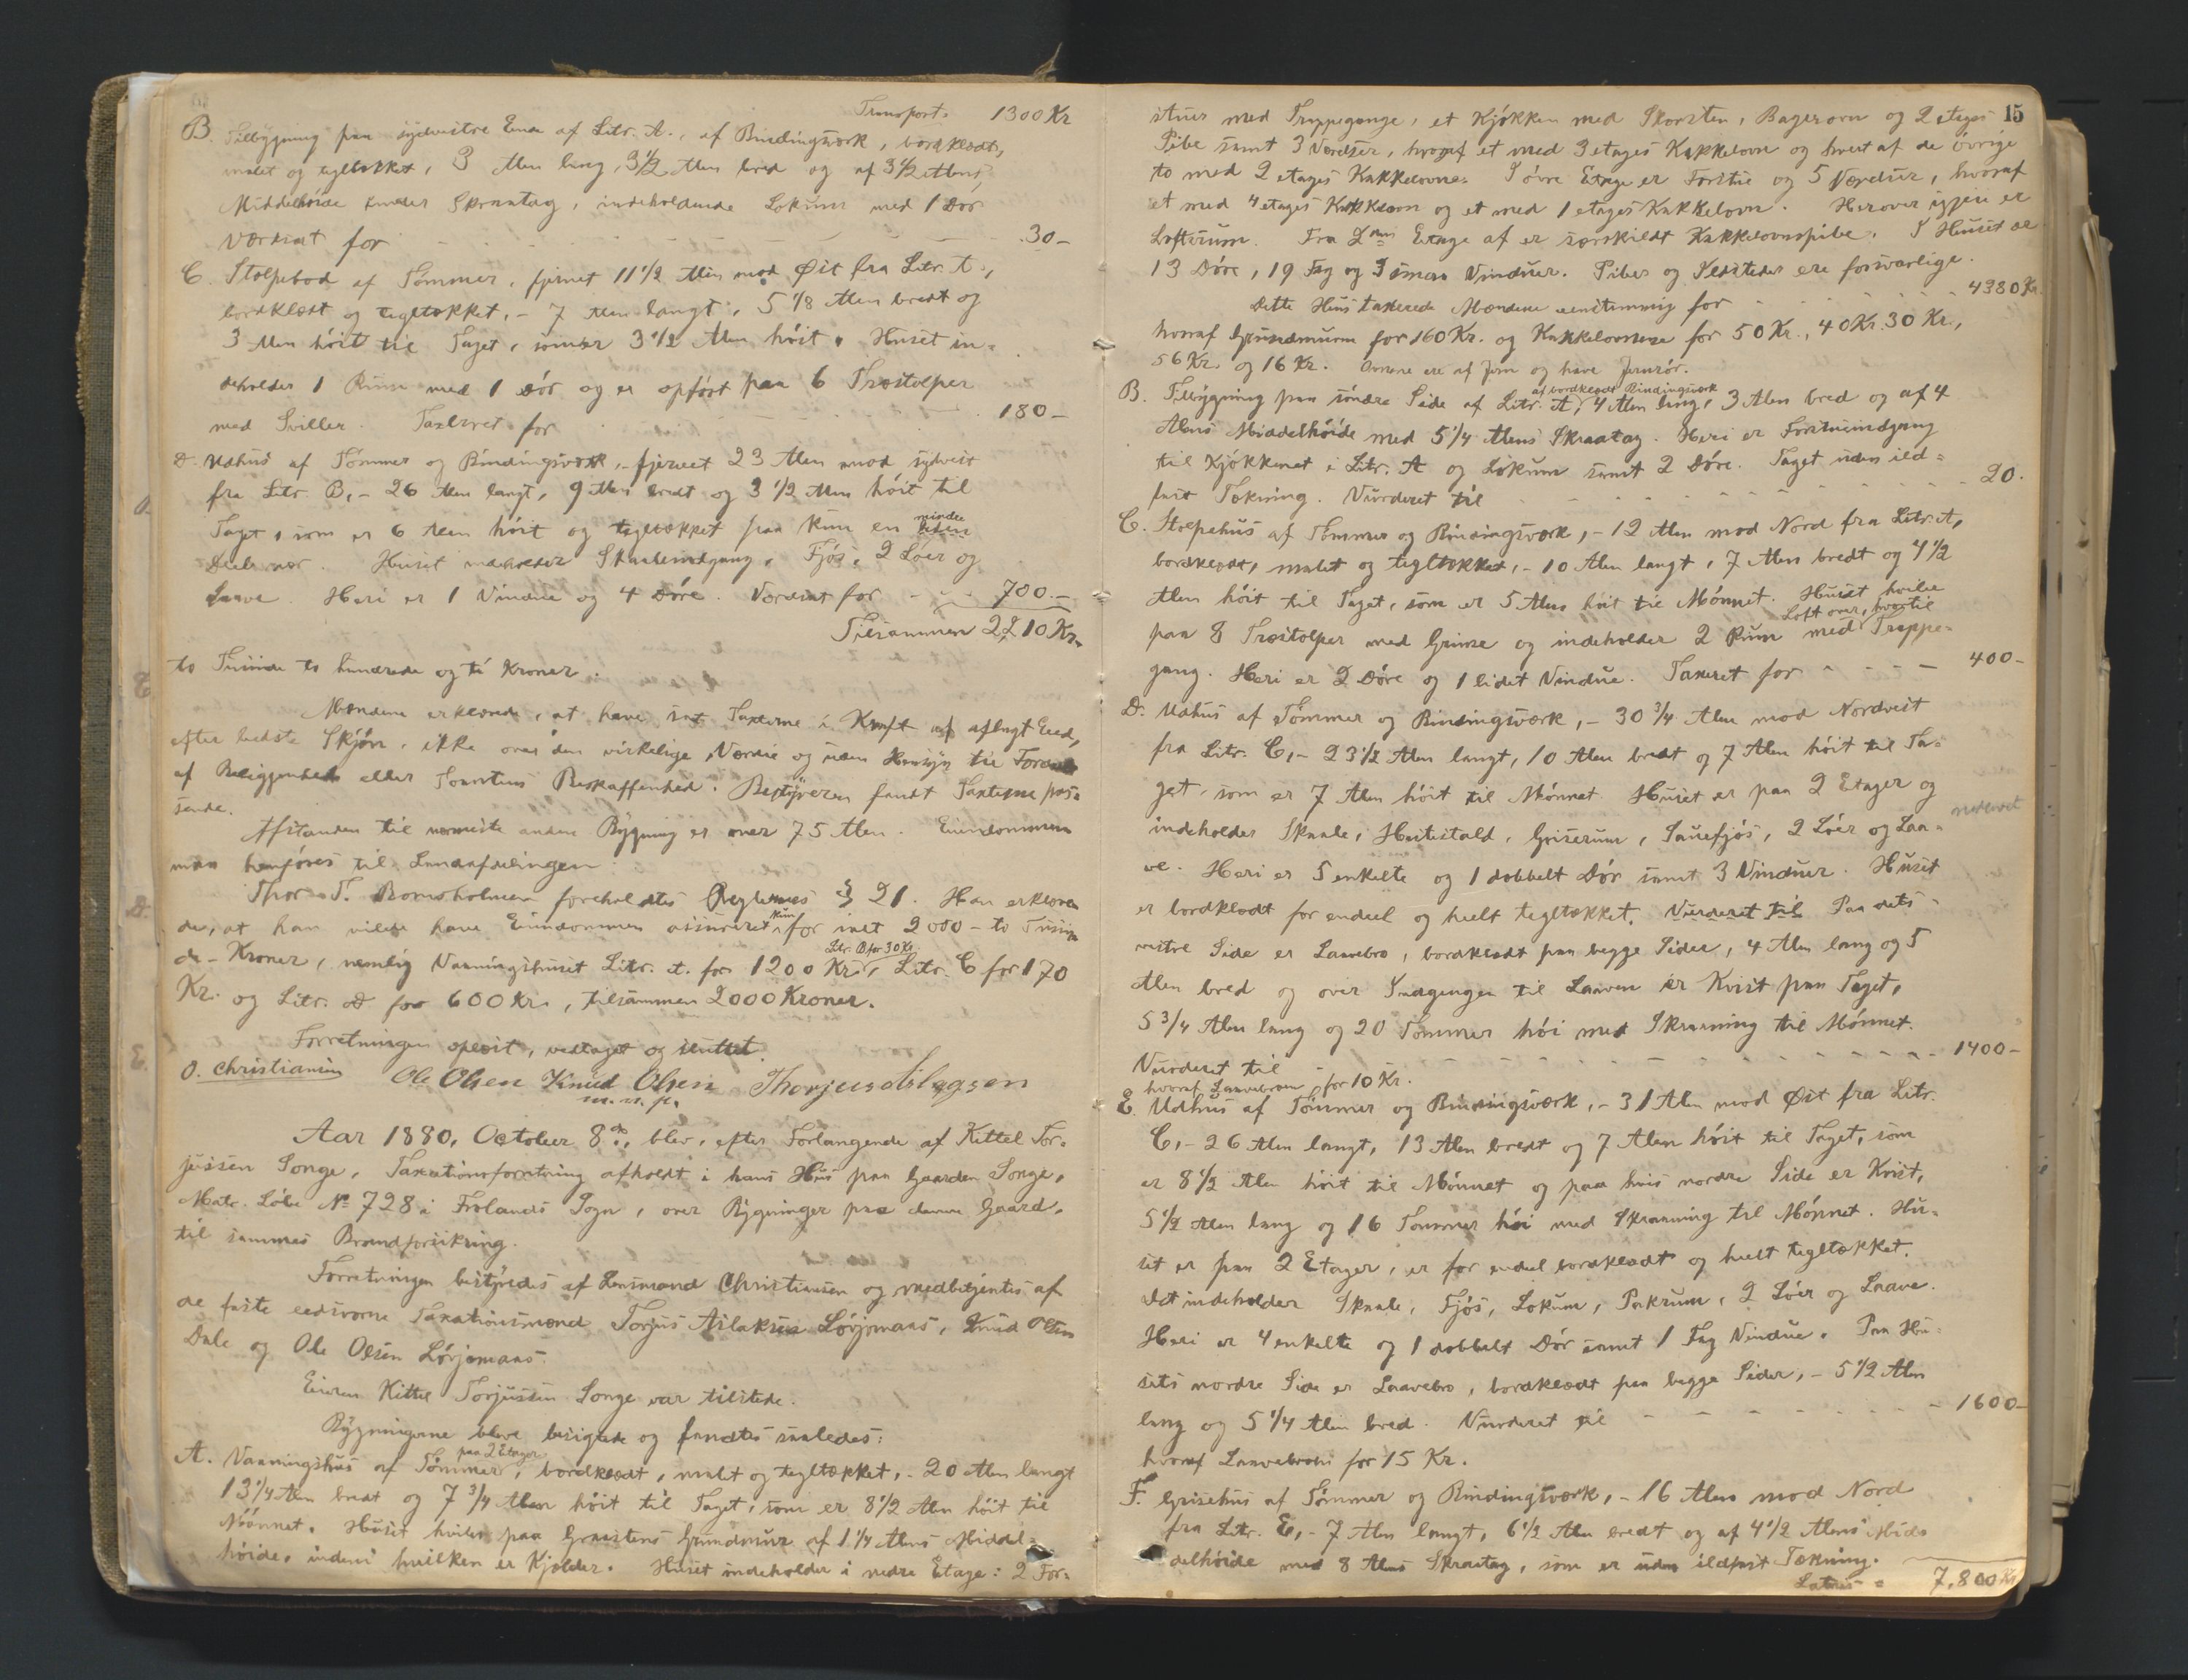 Transport. 1300 Kr
B. Tilbygning paa sydvestre Ende af Litr. A., af Bindingsværk, bordklædt,
malet og tegltækket, 3 Alen lang, 3 1/2 Alen bred og af 3 1/2 Alens
Middelhöide under Skraatag, indeholdende Lokum med 1 Dør
Værdsat for - - - 30 -
C. Stolpebod af Tømmer, fjernet 11 1/2 Alen mod Øst fra Litr. A.,
bordklædt og tegltækket, - 7 Alen langt, 5 1/8 Alen bredt og
3 Alen höit til Taget, som er 3 1/2 Alen höit. Huset in-
deholder 1 Rum med 1 Dör og er opfört paa 6 Træstolper
med Sviller. Taxeret for - - - 180 -
D. Udhus af Tömmer og Bindingsværk, - fjernet 23 Alen mod sydvest
fra Litr. B, - 26 Alen langt, 9 Alen bredt og 3 1/2 Alen höit til
Taget, som er 6 Alen höit og tegltækket paa kun en mindre
Deel nær. Huset indeholder Skaaleindgang, Fjös, 2 Löer og
Laave. Heri er 1 Vindue og 4 Döre. Værdsat for - - - 700. -
Tilsammen 2210 Kr.
to Tusinde to hundrede og ti Kroner.
Mændene erklærede, at have sat Taxterne i Kraft af aflagt Eed,
efter bedste Skjön, ikke over den virkelige Værdie og uden Hensyn til
af Beliggenhed eller Tomtens Beskaffenhed. Bestyreren fandt Taxterne pas-
sende.
Afstanden til nærmeste anden Bygning er over 75 Alen. Eiendommen
maa henföres til Landafdelingen.
Thor T. Bomsholmen foreholdtes Reglernes § 21. Han erklære-
de, at han vilde have Eiendommen assureret kun for ialt 2000 - to Tusin-
de - Kroner, nemlig Vaaningshuset Litr. A. for 1200 Kr., Litr. B for 30 Kr. Litr. C for 170
Kr. og Litr. D for 600 Kr., tilsammen 2000 Kroner.
Forretningen oplæst, vedtaget og sluttet.
O. Christiansen Ole Olsen Knud Olsen Thorjus Aslagsen
m. n. p.
Aar 1880, October 8de, blev, efter Forlangende af Kittel Tor-
jussen Songe, Taxationsforretning afholdt i hans Hus paa Gaarden Songe,
Matr. Löbe No 728 i Frolands Sogn, over Bygninger paa denne Gaard,
til sammes Brandforsikring.
Forretningen bestyredes af Lensmand Christiansen og medbetjentes af
de faste eedsvorne Taxationsmænd Torjus Aslaksen Lövjomaas, Knud Olsen
Dale og Ole Olsen Lövjomaas.
Eieren Kittel Torjussen Songe var tilstede.
Bygningerne bleve besigtede og fandtes saaledes:
A. Vaaningshus af Tömmer, paa 2 Etager bordklædt, malet og tegltækket, - 20 Alen langt
13 1/4 Alen bredt og 7 3/4 Alen höit til Taget, som er 8 1/2 Alen höit til
Mönnet. Huset hviler paa Graastens Grundmur af 1 1/4 Alens Middel-
höide, indeni hvilken er Kjelder. Huset indeholder i nedre Etage: 2 For-
15
stuer med Trappegange, et Kjökken med Skorsten, Bagerovn og 2 etages
Pibe samt 3 Værelser, hvoraf et med 3 etages Kakkelovn og hvert af de övrige
to med 2 etages Kakkelovne. I övre Etage er Forstue og 5 Værelser, hvoraf
et med 4 etages Kakkelovn og et med 1 etages Kakkelovn. Herover igjen er
Loftsrum. Fra 2den Etage af er særskildt Kakkelovnspibe. I Huset er
13 Döre, 19 Fag og 3 smaa Vinduer. Piber og Ildsteder ere forsvarlige.
Dette Hus taxerede Mændene eenstemmig for - - - 4380 Kr.
hvoraf Grundmuren for 160 Kr. og Kakkelovnene for 50 Kr., 40 Kr. 30 Kr.,
56 Kr. og 16 Kr. Ovnene ere af Jern og have Jernrör.
B. Tilbygning paa söndre Side af Litr. A, af bordklædt Bindingsværk 4 Alen lang, 3 Alen bred og af 4
Alens Middelhöide med 5 1/4 Alens Skraatag. Heri er Forstueindgang
til Kjökkenet i Litr. A og Lokum samt 2 Döre. Taget uden ild-
fast Tækning. Vurderet til - - - 20.
C. Stolpehus af Tömmer og Bindingsværk, - 12 Alen mod Nord fra Litr. A,
bordklædt, malet og tegltækket, - 10 Alen langt, 7 Alen bredt og 4 1/2
Alen höit til Taget, som er 5 Alen höit til Mönnet. Huset hviler
paa 8 Træstolper med Grime og indeholder 2 Rum med Loft over, hvortil Trappe-
gang. Heri er 2 Döre og 1 lidet Vindue. Taxeret for - - - 400 -
D. Udhus af Tömmer og Bindingsværk, - 30 3/4 Alen mod Nordvest
fra Litr. C, - 23 1/2 Alen langt, 10 Alen bredt og 7 Alen höit til Ta-
get, som er 7 Alen höit til Mönnet. Huset er paa 2 Etager og
indeholder Skaale, Hestestald, Griserum, Sauefjös, 2 Löer og Laa-
ve. Heri er 5 enkelte og 1 dobbelt Dör samt 3 Vinduer. Huset
er bordklædt for endeel og heelt tegltækket. Vurderet til Paa dets
vestre Side er Laavebro, bordklædt paa begge Sider, 4 Alen lang og 5
Alen bred og over Indgangen til Laaven er Kvist paa Taget,
5 3/4 Alen lang og 20 Tommer höi med Skraaning til Mönnet.
Vurderet til - - - 1400 -
hvoraf Laavebroen for 10 Kr.
E. Udhus af Tömmer og Bindingsværk, - 31 Alen mod Øst fra Litr.
C, - 26 Alen langt, 13 Alen bredt og 7 Alen höit til Taget, som
er 8 1/2 Alen höit til Mönnet og paa hvis nordre Side er Kvist,
5 1/2 Alen lang og 16 Tommer höi med Skraaning til Mönnet. Hu-
set er paa 2 Etager, er for endeel bordklædt og heelt tegltækket.
Det indeholder Skaale, Fjös, Lokum, Pakrum, 2 Löer og Laave.
Heri er 4 enkelte og 1 dobbelt Dör samt 1 Fag Vindue. Paa Hu-
sets nordre Side er Laavebro, bordklædt paa begge Sider, - 5 1/2 Alen
lang og 5 1/4 Alen bred. Vurderet til - - - 1600 -
hvoraf Laavebroen for 15 Kr.
F. Grisehus af Tömmer og Bindingsværk, - 16 Alen mod Nord
fra Litr. E, - 7 Alen langt, 6 1/2 Alen bredt og af 4 1/2 Alens Mid-
delhöide med 8 Alens Skraatag, som er uden ildfast Tækning.
Latus = 7,800 Kr